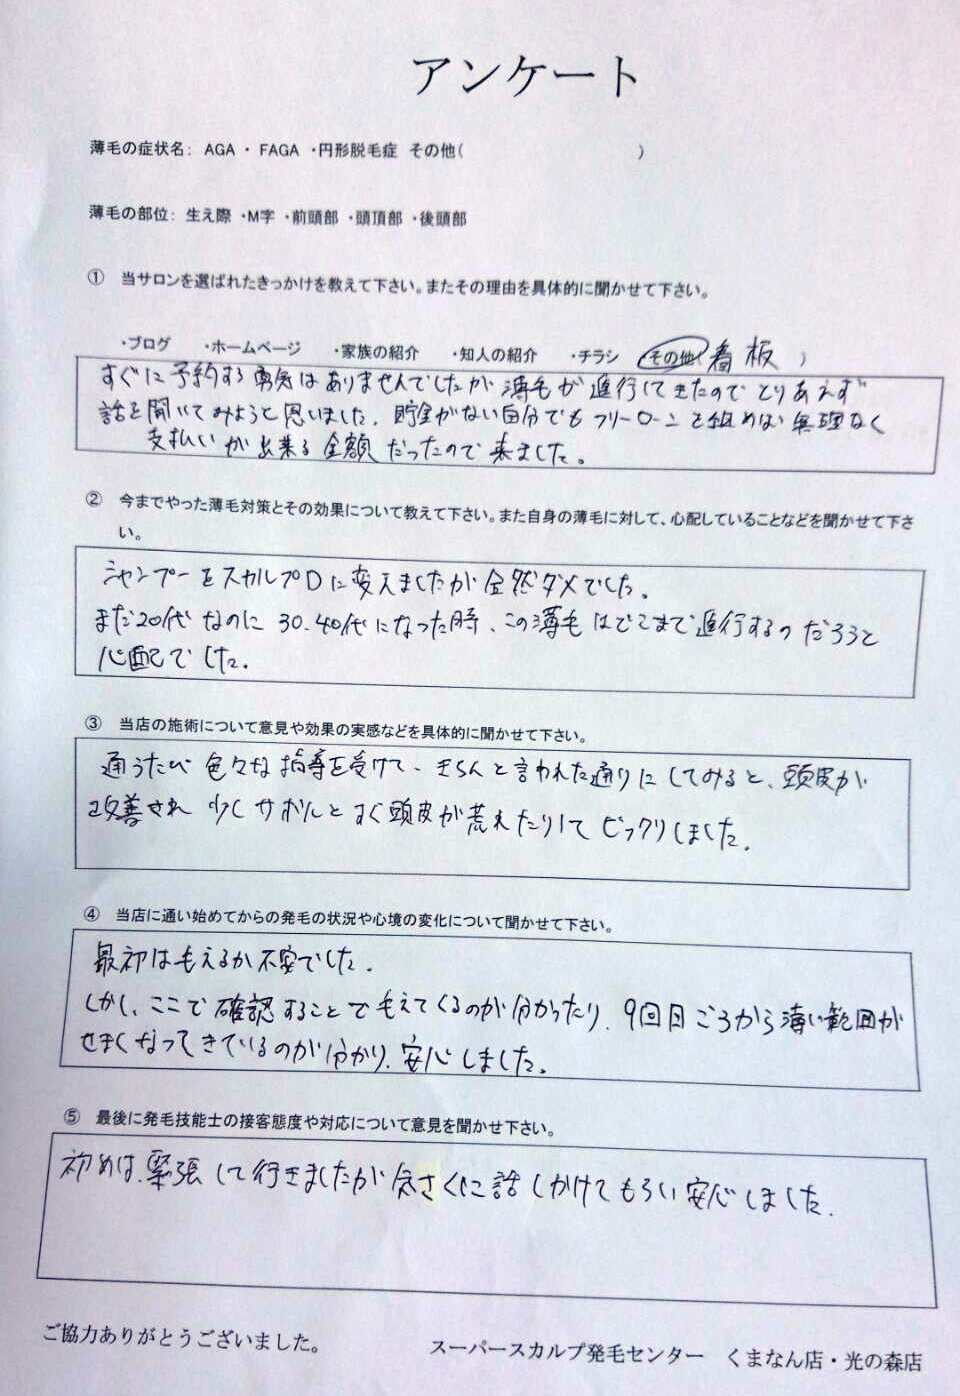 アンケート
薄毛の症状名： AGA ・ FAGA ・円形脱毛症 その他（ ）
薄毛の部位： 生え際 ・M字 ・前頭部 ・頭頂部 ・後頭部
① 当サロンを選ばれたきっかけを教えて下さい。またその理由を具体的に聞かせて下さい。
・ブログ ・ホームページ ・家族の紹介 ・知人の紹介 ・チラシ その他 看板 ）
すぐに予約する勇気はありませんでしたが 薄毛が進行してきたので とりあえず
話を聞いてみようと思いました。貯金がない自分でも フリーローンを組めば 無理なく
支払いが出来る金額だったので 来ました。
② 今までやった薄毛対策とその効果について教えて下さい。また自身の薄毛に対して、心配していることなどを聞かせて下さ
い。
シャンプーをスカルプDに変えましたが全然ダメでした。
まだ20代なのに 30.40代になった時、この薄毛はどこまで進行するのだろうと
心配でした。
③ 当店の施術について意見や効果の実感などを具体的に聞かせて下さい。
通うたび 色々な指導を受けて、きちんと言われた通りにしてみると、頭皮が
改善され 少しサボルとすぐ頭皮が荒れたりして ビックリしました。
④ 当店に通い始めてからの発毛の状況や心境の変化について聞かせて下さい。
最初はもえるか不安でした。
しかし、ここで確認することで もえてくるのが分かったり、9回目ごろから薄い範囲が
せまくなってきているのが分かり、安心しました。
⑤ 最後に発毛技能士の接客態度や対応について意見を聞かせ下さい。
初めは、緊張して行きましたが 気さくに話しかけてもらい安心しました。
ご協力ありがとうございました。
スーパースカルプ発毛センター くまなん店・光の森店